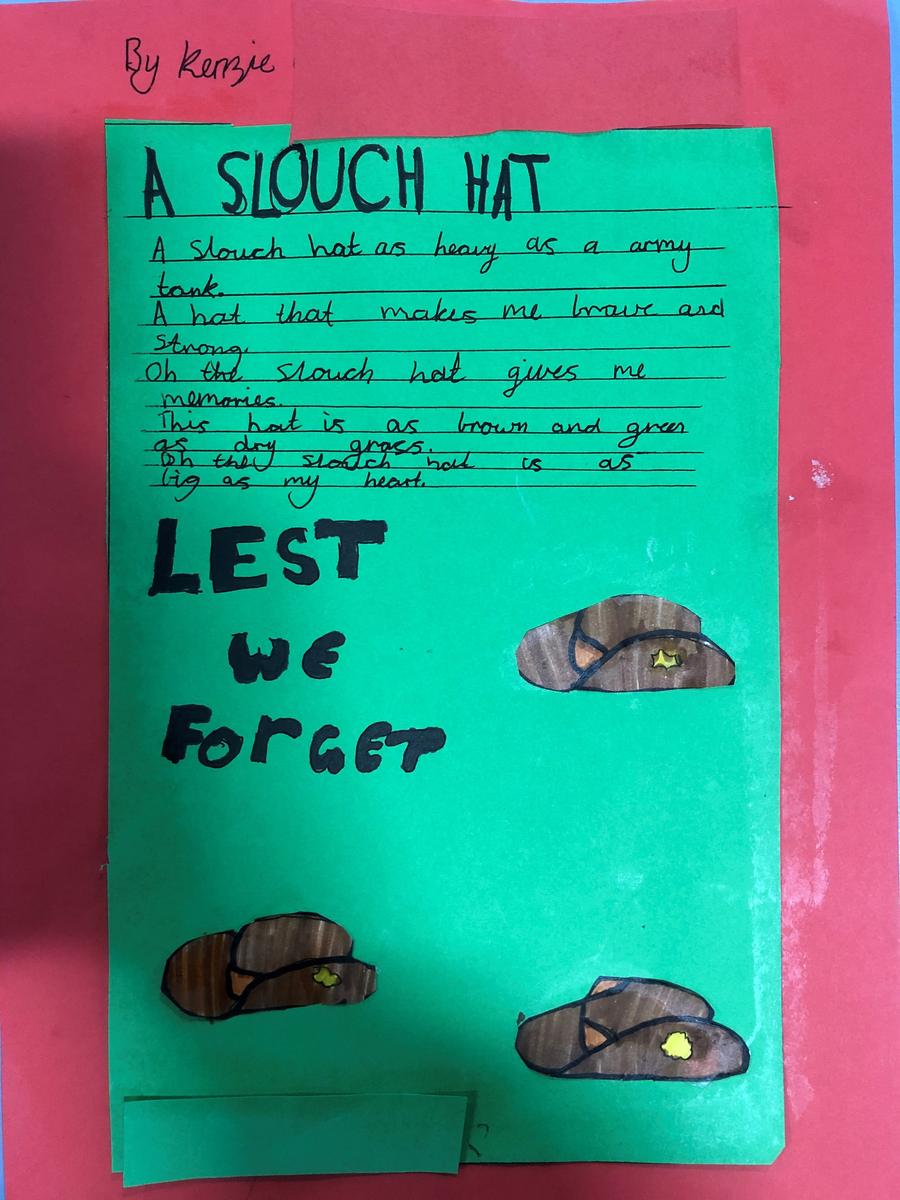 By Kenzie
A SLOUCH HAT
A Slouch hat as heavy as a army
tank.
A hat that makes me brave and
Strong.
Oh the slouch hat gives me
memories.
This hat is as brown and green
as dry grass.
Oh the slouch hat is as
big as my heart.
LEST
WE
FOrGET